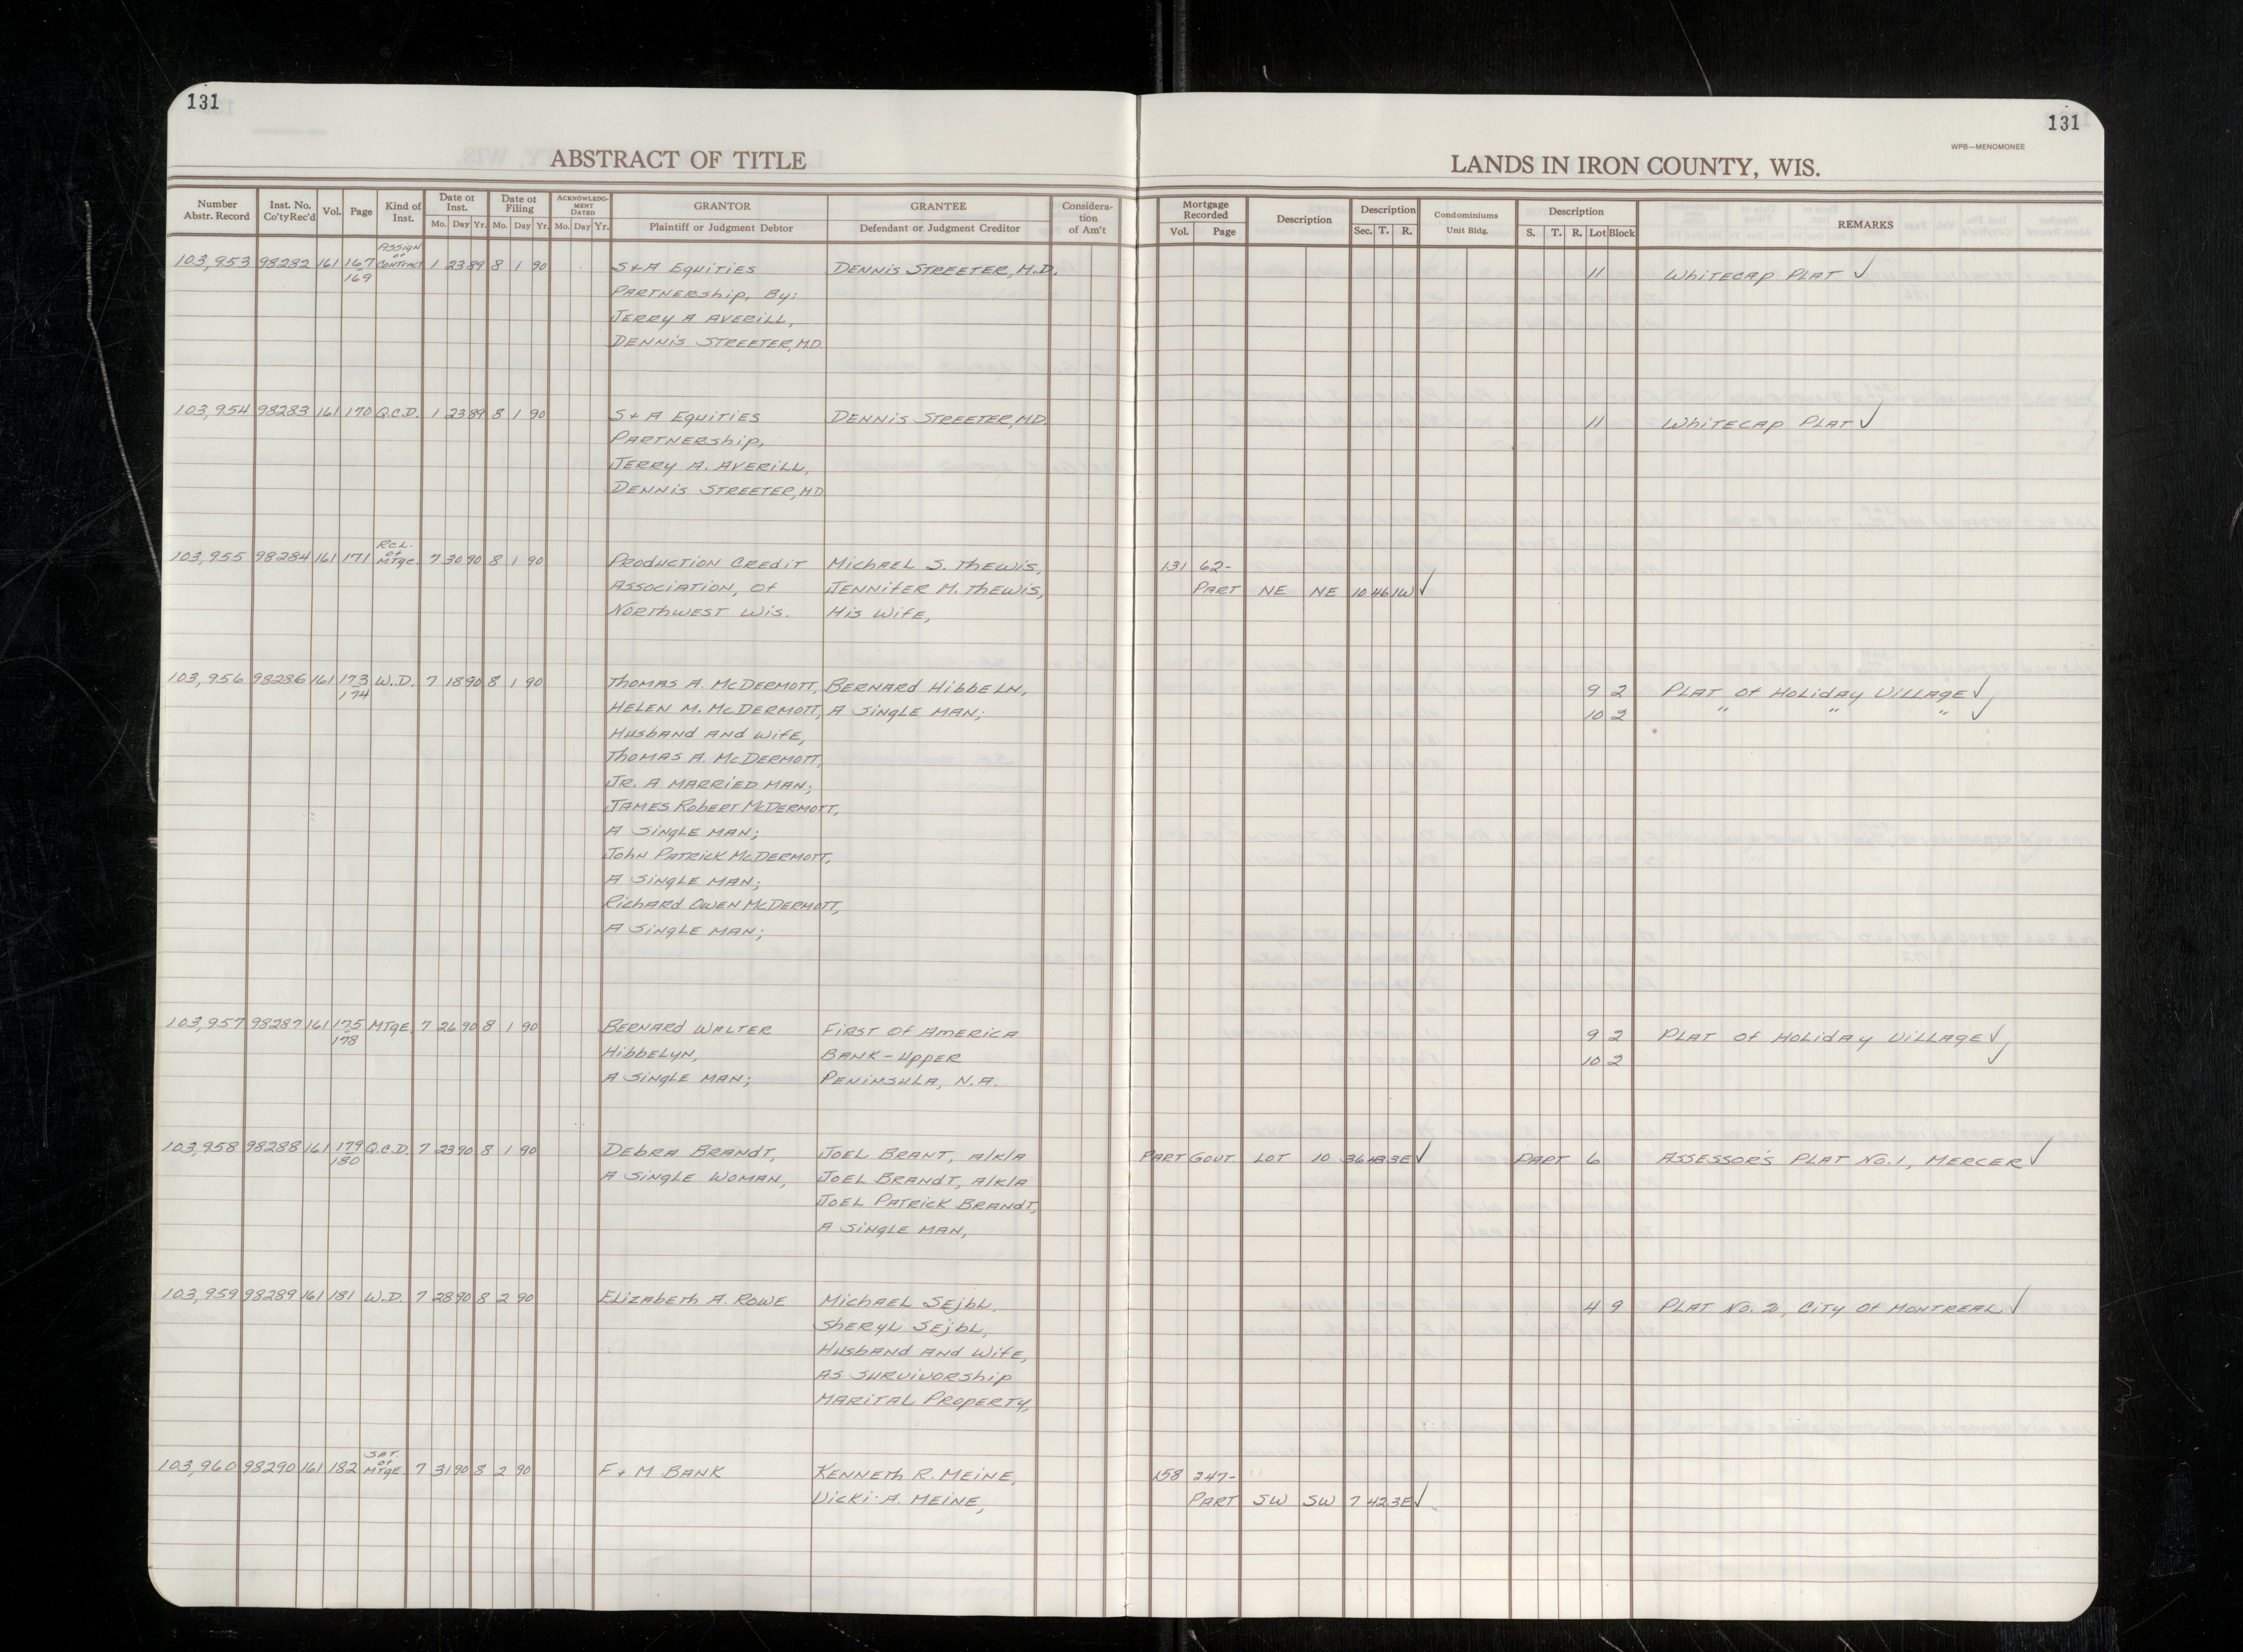 131
131
WPB—MENOMONEE
ABSTRACT OF TITLE
LANDS IN IRON COUNTY, WIS.
Number Abstr. Record
Inst. No. Co'ty Rec'd
Vol.
Page
Kind of Inst.
Date of Inst.
Mo. Day Yr.
Date of Filing
Mo. Day Yr.
ACKNOWLEDGMENT DATED
Mo. Day Yr.
GRANTOR
Plaintiff or Judgment Debtor
GRANTEE
Defendant or Judgment Creditor
Consideration of Am't
Mortgage Recorded
Vol. Page
Description
Description
Sec. T. R.
Condominiums
Unit Bldg.
Description
S. T. R. Lot Block
REMARKS
103,953 98282 161 167 169 Assign of Contract 1 23 89 8 1 90 S+A Equities Dennis Streeter, M.D. 11 Whitecap Plat ✓
Partnership, By:
Jerry A Averill,
Dennis Streeter, M.D.
103,954 98283 161 170 Q.C.D. 1 23 89 8 1 90 S+A Equities Dennis Streeter, MD. 11 Whitecap Plat ✓
Partnership,
Jerry A. Averill,
Dennis Streeter, MD
103,955 98284 161 171 Rel. of Mtge. 7 30 90 8 1 90 Production Credit Michael S. Thewis, 131 62-
Association, of Jennifer M. Thewis, Part NE NE 10 46 1W ✓
Northwest Wis. His Wife,
103,956 98286 161 173 174 W.D. 7 18 90 8 1 90 Thomas A. McDermott, Bernard Hibbeln, 9 2 Plat of Holiday Village ✓
Helen M. McDermott, A Single Man; 10 2 " " " ✓
Husband and Wife,
Thomas A. McDermott,
Jr. A Married Man;
James Robert McDermott,
A Single Man;
John Patrick McDermott,
A Single Man;
Richard Owen McDermott,
A Single Man;
103,957 98287 161 175 178 Mtge. 7 26 90 8 1 90 Bernard Walter First of America 9 2 Plat of Holiday Village ✓
Hibbelyn, Bank-Upper 10 2 ✓
A Single Man; Peninsula, N.A.
103,958 98288 161 179 180 Q.C.D. 7 23 90 8 1 90 Debra Brandt, Joel Brant, a/k/a Part Gout. Lot 10 36 43 3E ✓ Part 6 Assessor's Plat No. 1, Mercer ✓
A Single Woman, Joel Brandt, a/k/a
Joel Patrick Brandt,
A Single Man,
103,959 98289 161 181 W.D. 7 28 90 8 2 90 Elizabeth A. Rowe Michael Sejbl, 4 9 Plat No. 2, City of Montreal ✓
Sheryl Sejbl,
Husband and Wife,
As Survivorship
Marital Property,
103,960 98290 161 182 Sat. of Mtge. 7 31 90 8 2 90 F+M Bank Kenneth R. Meine, 158 247-
Vicki A. Meine, Part SW SW 7 42 3E ✓